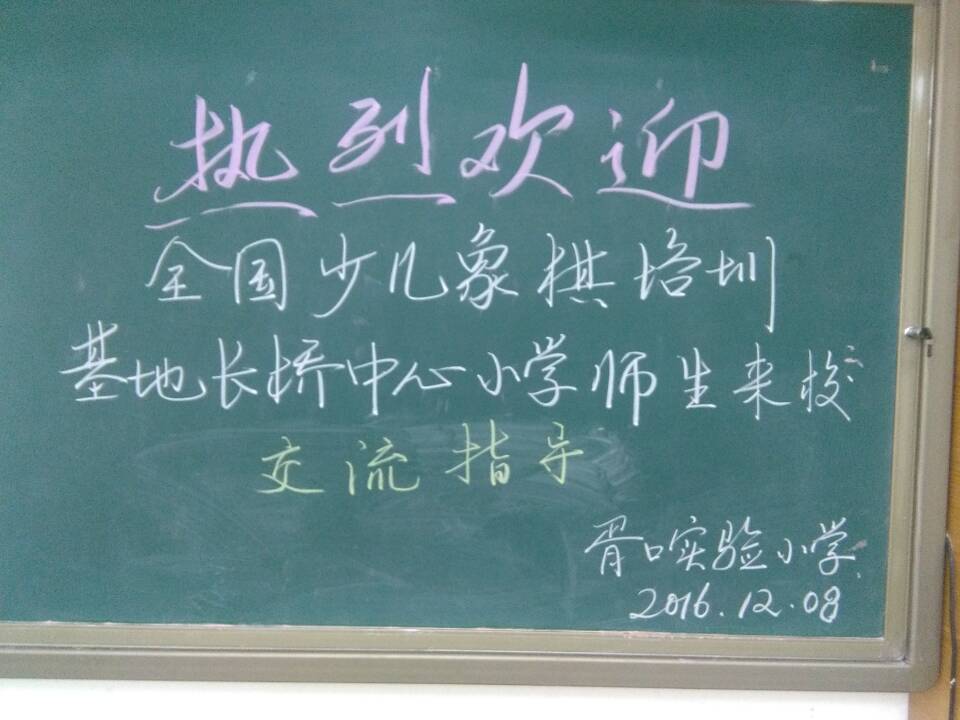 热烈欢迎
全国少儿象棋培训
基地长桥中心小学师生来校
交流指导
胥口实验小学
2016.12.08